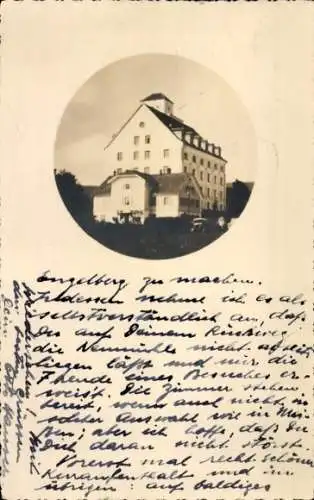 Engelberg zu machen.
Indessen nehme ich es als
selbstverständlich an, daß
Du auf Deinem Rückweg
die Neumühle nicht abseits
liegen läßt und mir die
Freude eines Besuches er-
weist. Die Zimmer stehen
bereit, wenn auch nicht in
solcher Auswahl wie in Mün-
; aber ich hoffe daß Du
Dich daran nicht störst.
Vorerst mal recht schönen
Kuraufenthalt und im
übrigen: auf baldiges
Wiedersehen!